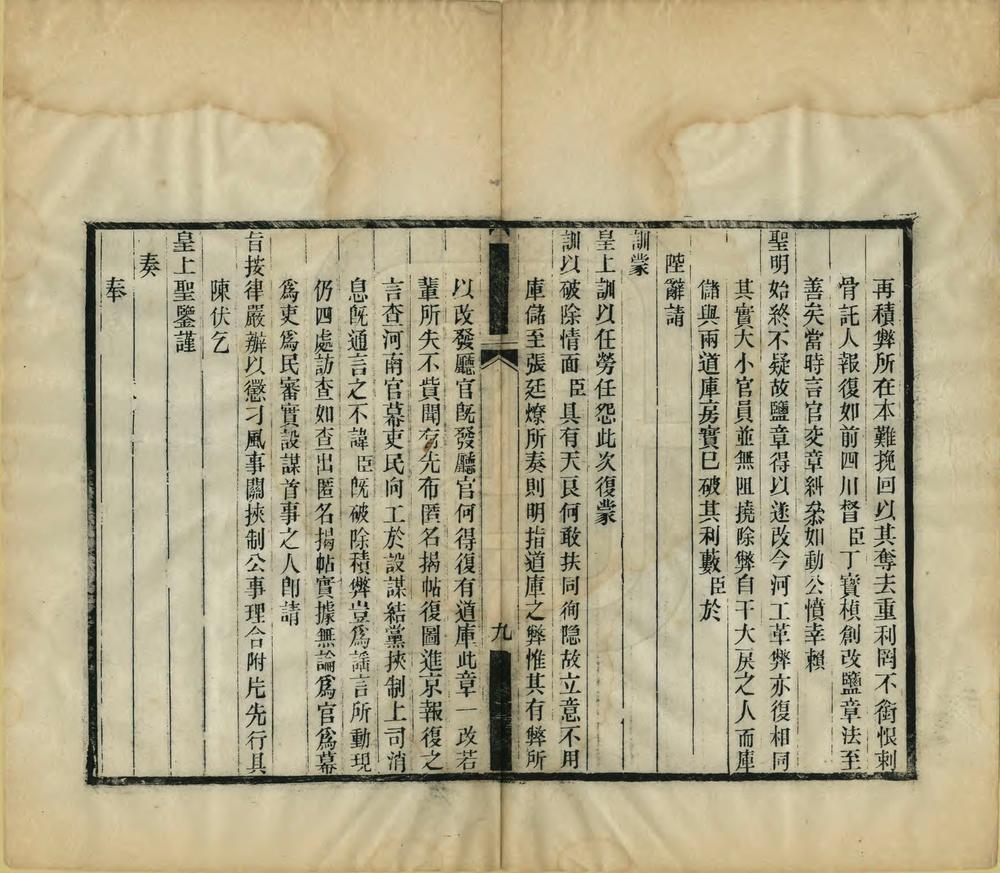 再積弊所在本難挽回以其奪去重利罔不銜恨刺
骨託人報復如前四川督臣丁寶楨創改鹽章法至
善矣當時言官交章糾叅如動公憤幸賴
聖明始終不疑故鹽章得以遂改今河工革弊亦復相同
其實大小官員並無阻撓除弊自干大戾之人而庫
儲與兩道庫房實已破其利藪臣於
陛辭請
訓蒙
皇上訓以任勞任怨此次復蒙
訓以破除情面臣具有天良何敢扶同徇隐故立意不用
庫儲至張廷燎所奏則明指道庫之弊惟其有弊所
九
以改發廳官旣發廳官何得復有道庫此章一改若
輩所失不貲聞有先布匿名揭帖復圖進京報復之
言查河南官幕吏民向工於設謀結黨挾制上司消
息旣通言之不諱臣旣破除積弊豈爲謡言所動現
仍四處訪查如查出匿名揭帖實據無論爲官爲幕
爲吏爲民審實設謀首事之人卽請
旨按律嚴辦以懲刁風事關挾制公事理合附片先行具
陳伏乞
皇上聖鑒謹
奏
奉